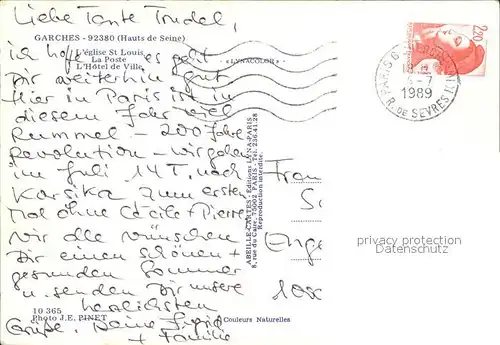 Liebe Tante Trudel,
GARCHES - 92380 (Hauts de Seine)
L'église St Louis
La Poste
L'Hôtel de Ville
« LYNACOLOR »
ich hoffe es geht
Dir weiterhin gut
Hier in Paris ist in
diesem Jahr viel
Rummel - 200 Jahre
Revolution - wir gehen
im Juli 14 T. nach
Korsika zum ersten
Mal ohne Cécile + Pierre
Wir alle wünschen
Dir einen schönen +
gesunden Sommer
u. senden Dir unsere
herzlichsten
Grüße, Deine Sigrid
+ Familie
10 365
Photo J.E. PINET
Couleurs Naturelles
ABEILLE-CARTES - Editions LYNA-PARIS
8, rue du Caire, 75002 PARIS - Tél. 236.41.28
Reproduction interdite
2,20
PARIS 6
4-7
1989
R. DE SEVRES
Frau
Enge
privacy protection
watermark